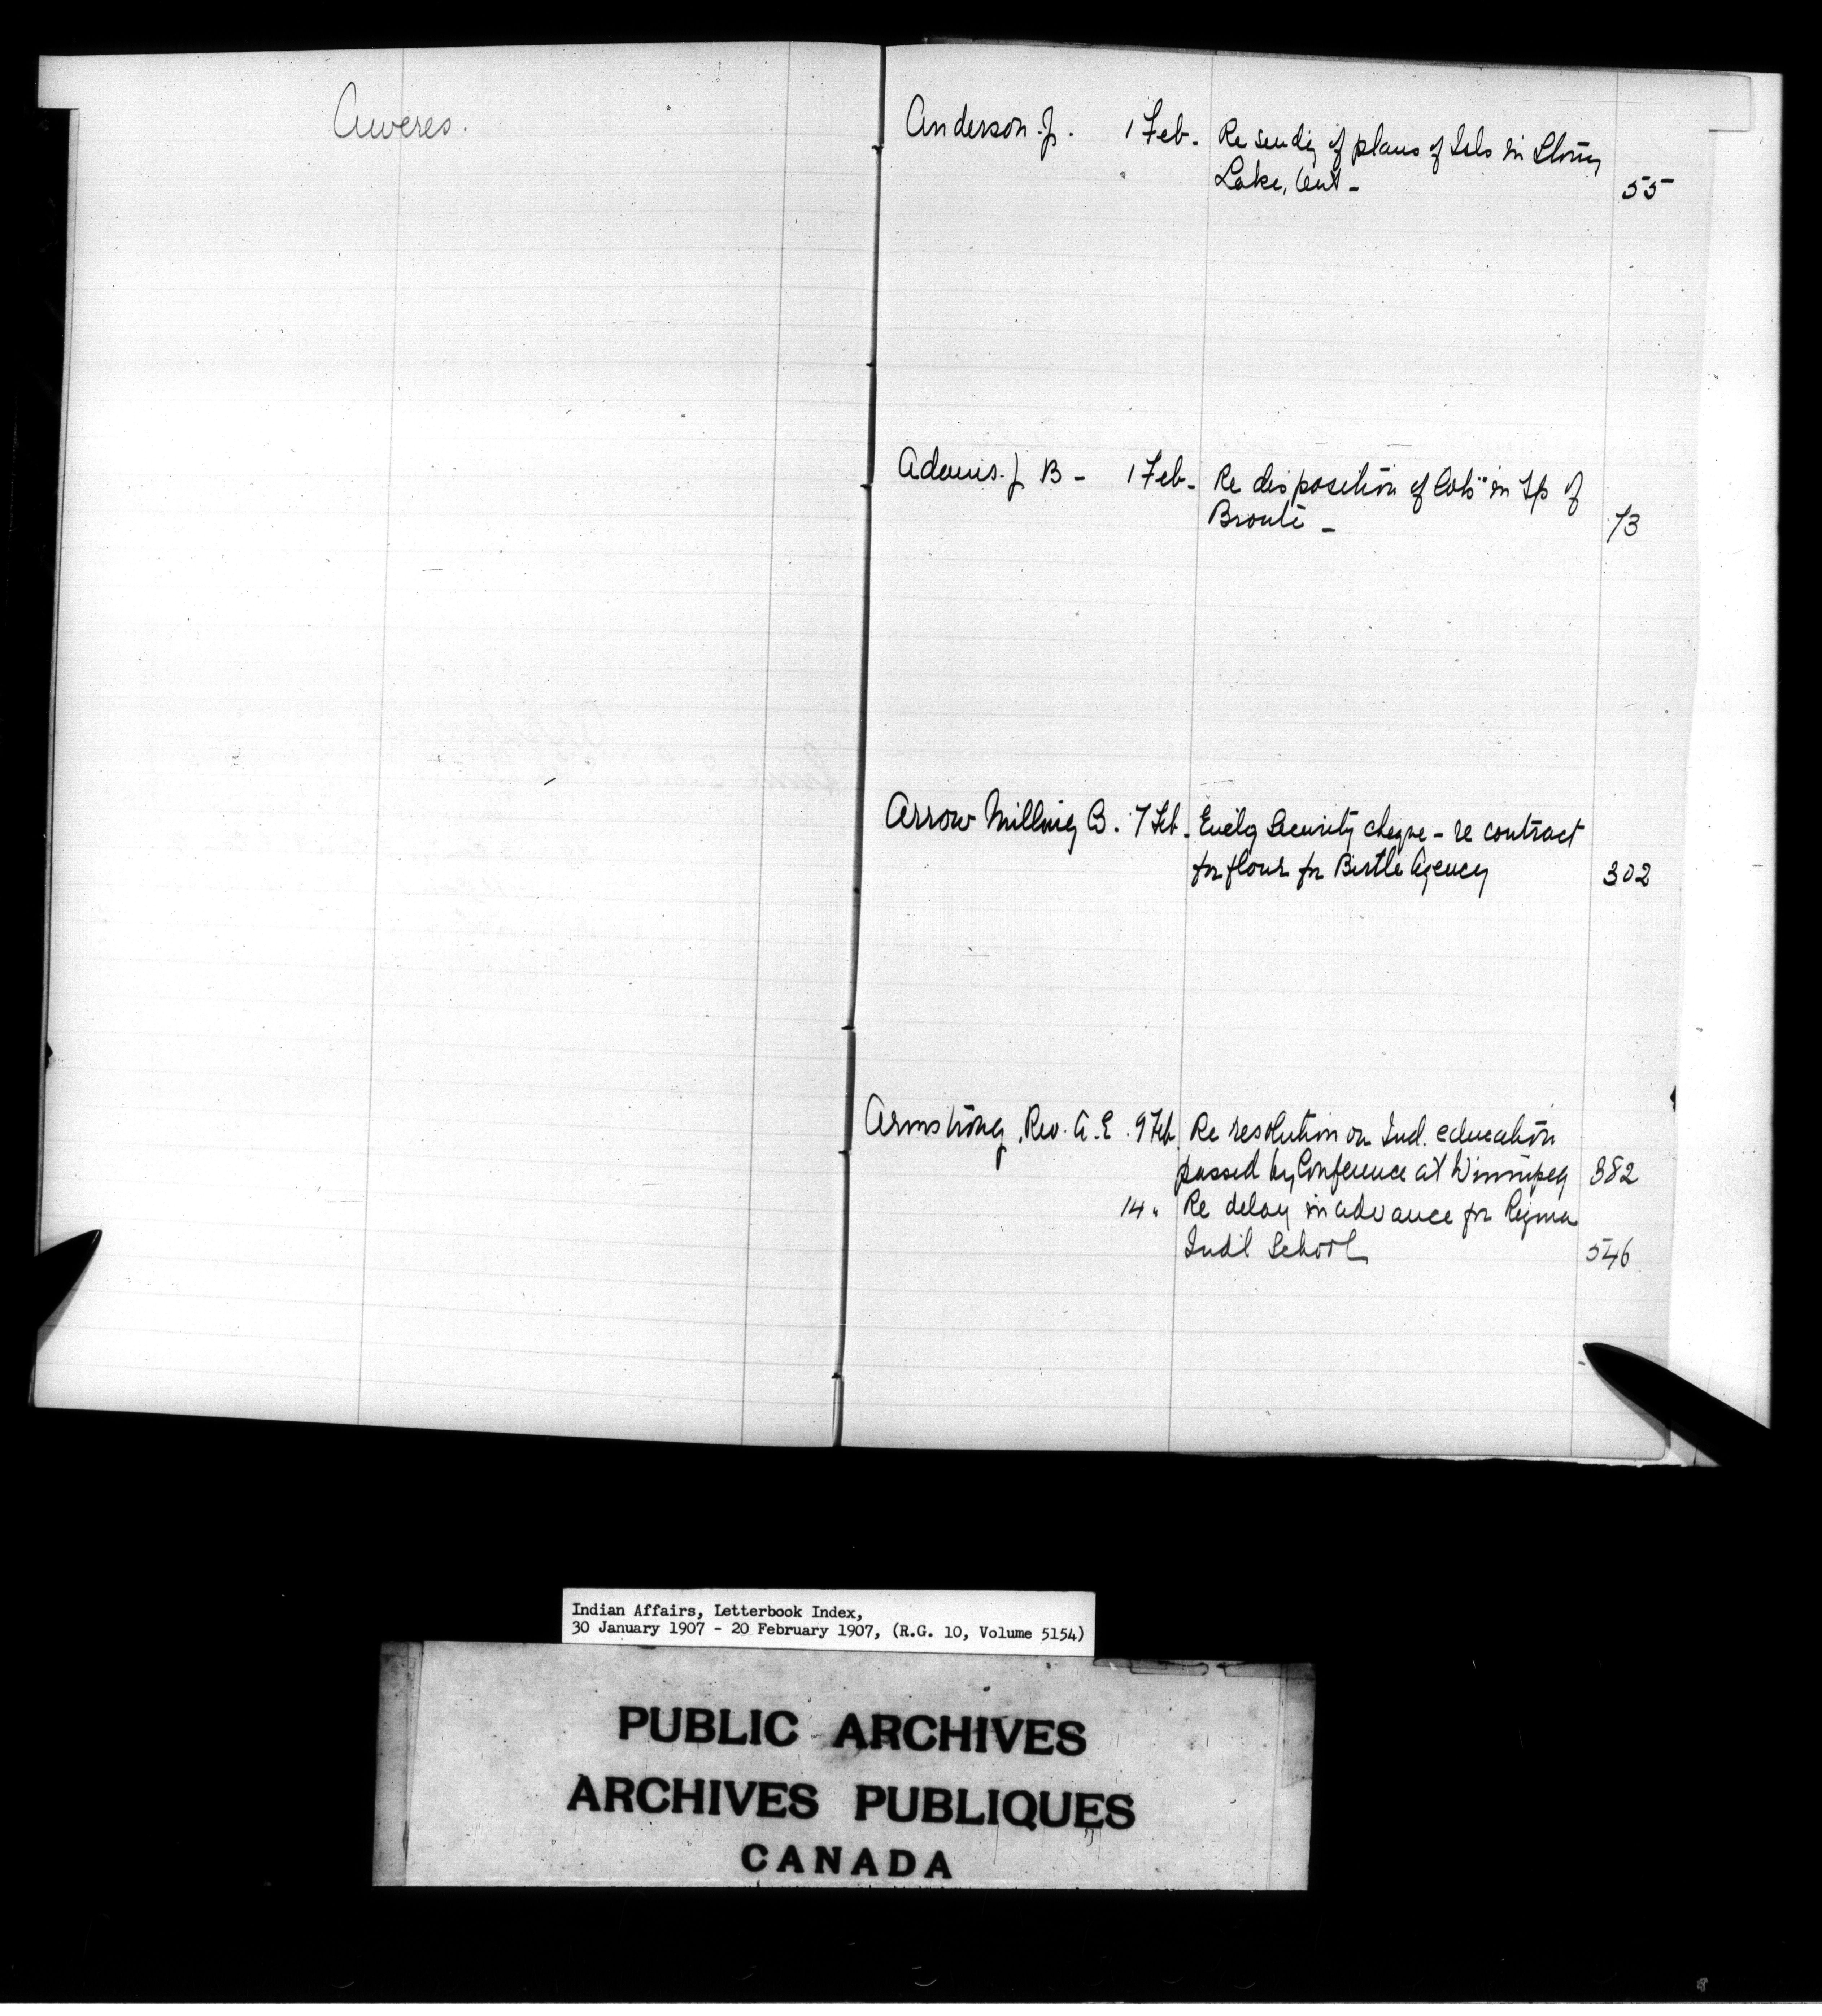 Aweres.
Anderson. J. 1 Feb. Re sending of plans of Isls in Stony
Lake, Ont - 55
Adams. J B - 1 Feb. Re disposition of lots in Tp of
Bronte - 73
Arrow Milling Co. 7 Feb. Enclg Security cheque - re contract
for flour for Birtle Agency 302
Armstrong, Rev. A. E. 9 Feb Re resolution on Ind. education
passed by Conference at Winnipeg 382
14 " Re delay in advance for Regina
Ind'l School 546
Indian Affairs, Letterbook Index,
30 January 1907 - 20 February 1907, (R.G. 10, Volume 5154)
PUBLIC ARCHIVES
ARCHIVES PUBLIQUES
CANADA